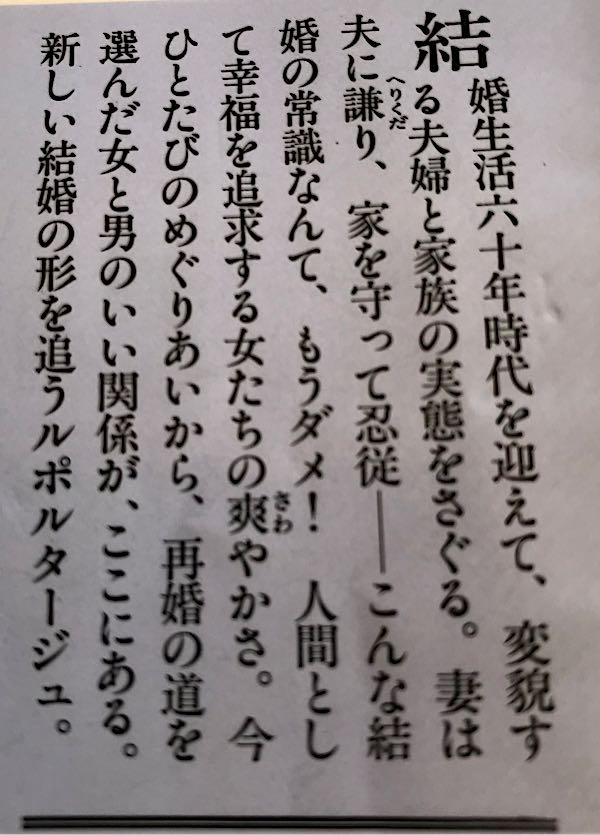 結婚生活六十年時代を迎えて、変貌す
る夫婦と家族の実態をさぐる。妻は
夫に謙り、家を守って忍従――こんな結
婚の常識なんて、もうダメ！　人間とし
て幸福を追求する女たちの爽やかさ。今
ひとたびのめぐりあいから、再婚の道を
選んだ女と男のいい関係が、ここにある。
新しい結婚の形を追うルポルタージュ。
へりくだ
さわ